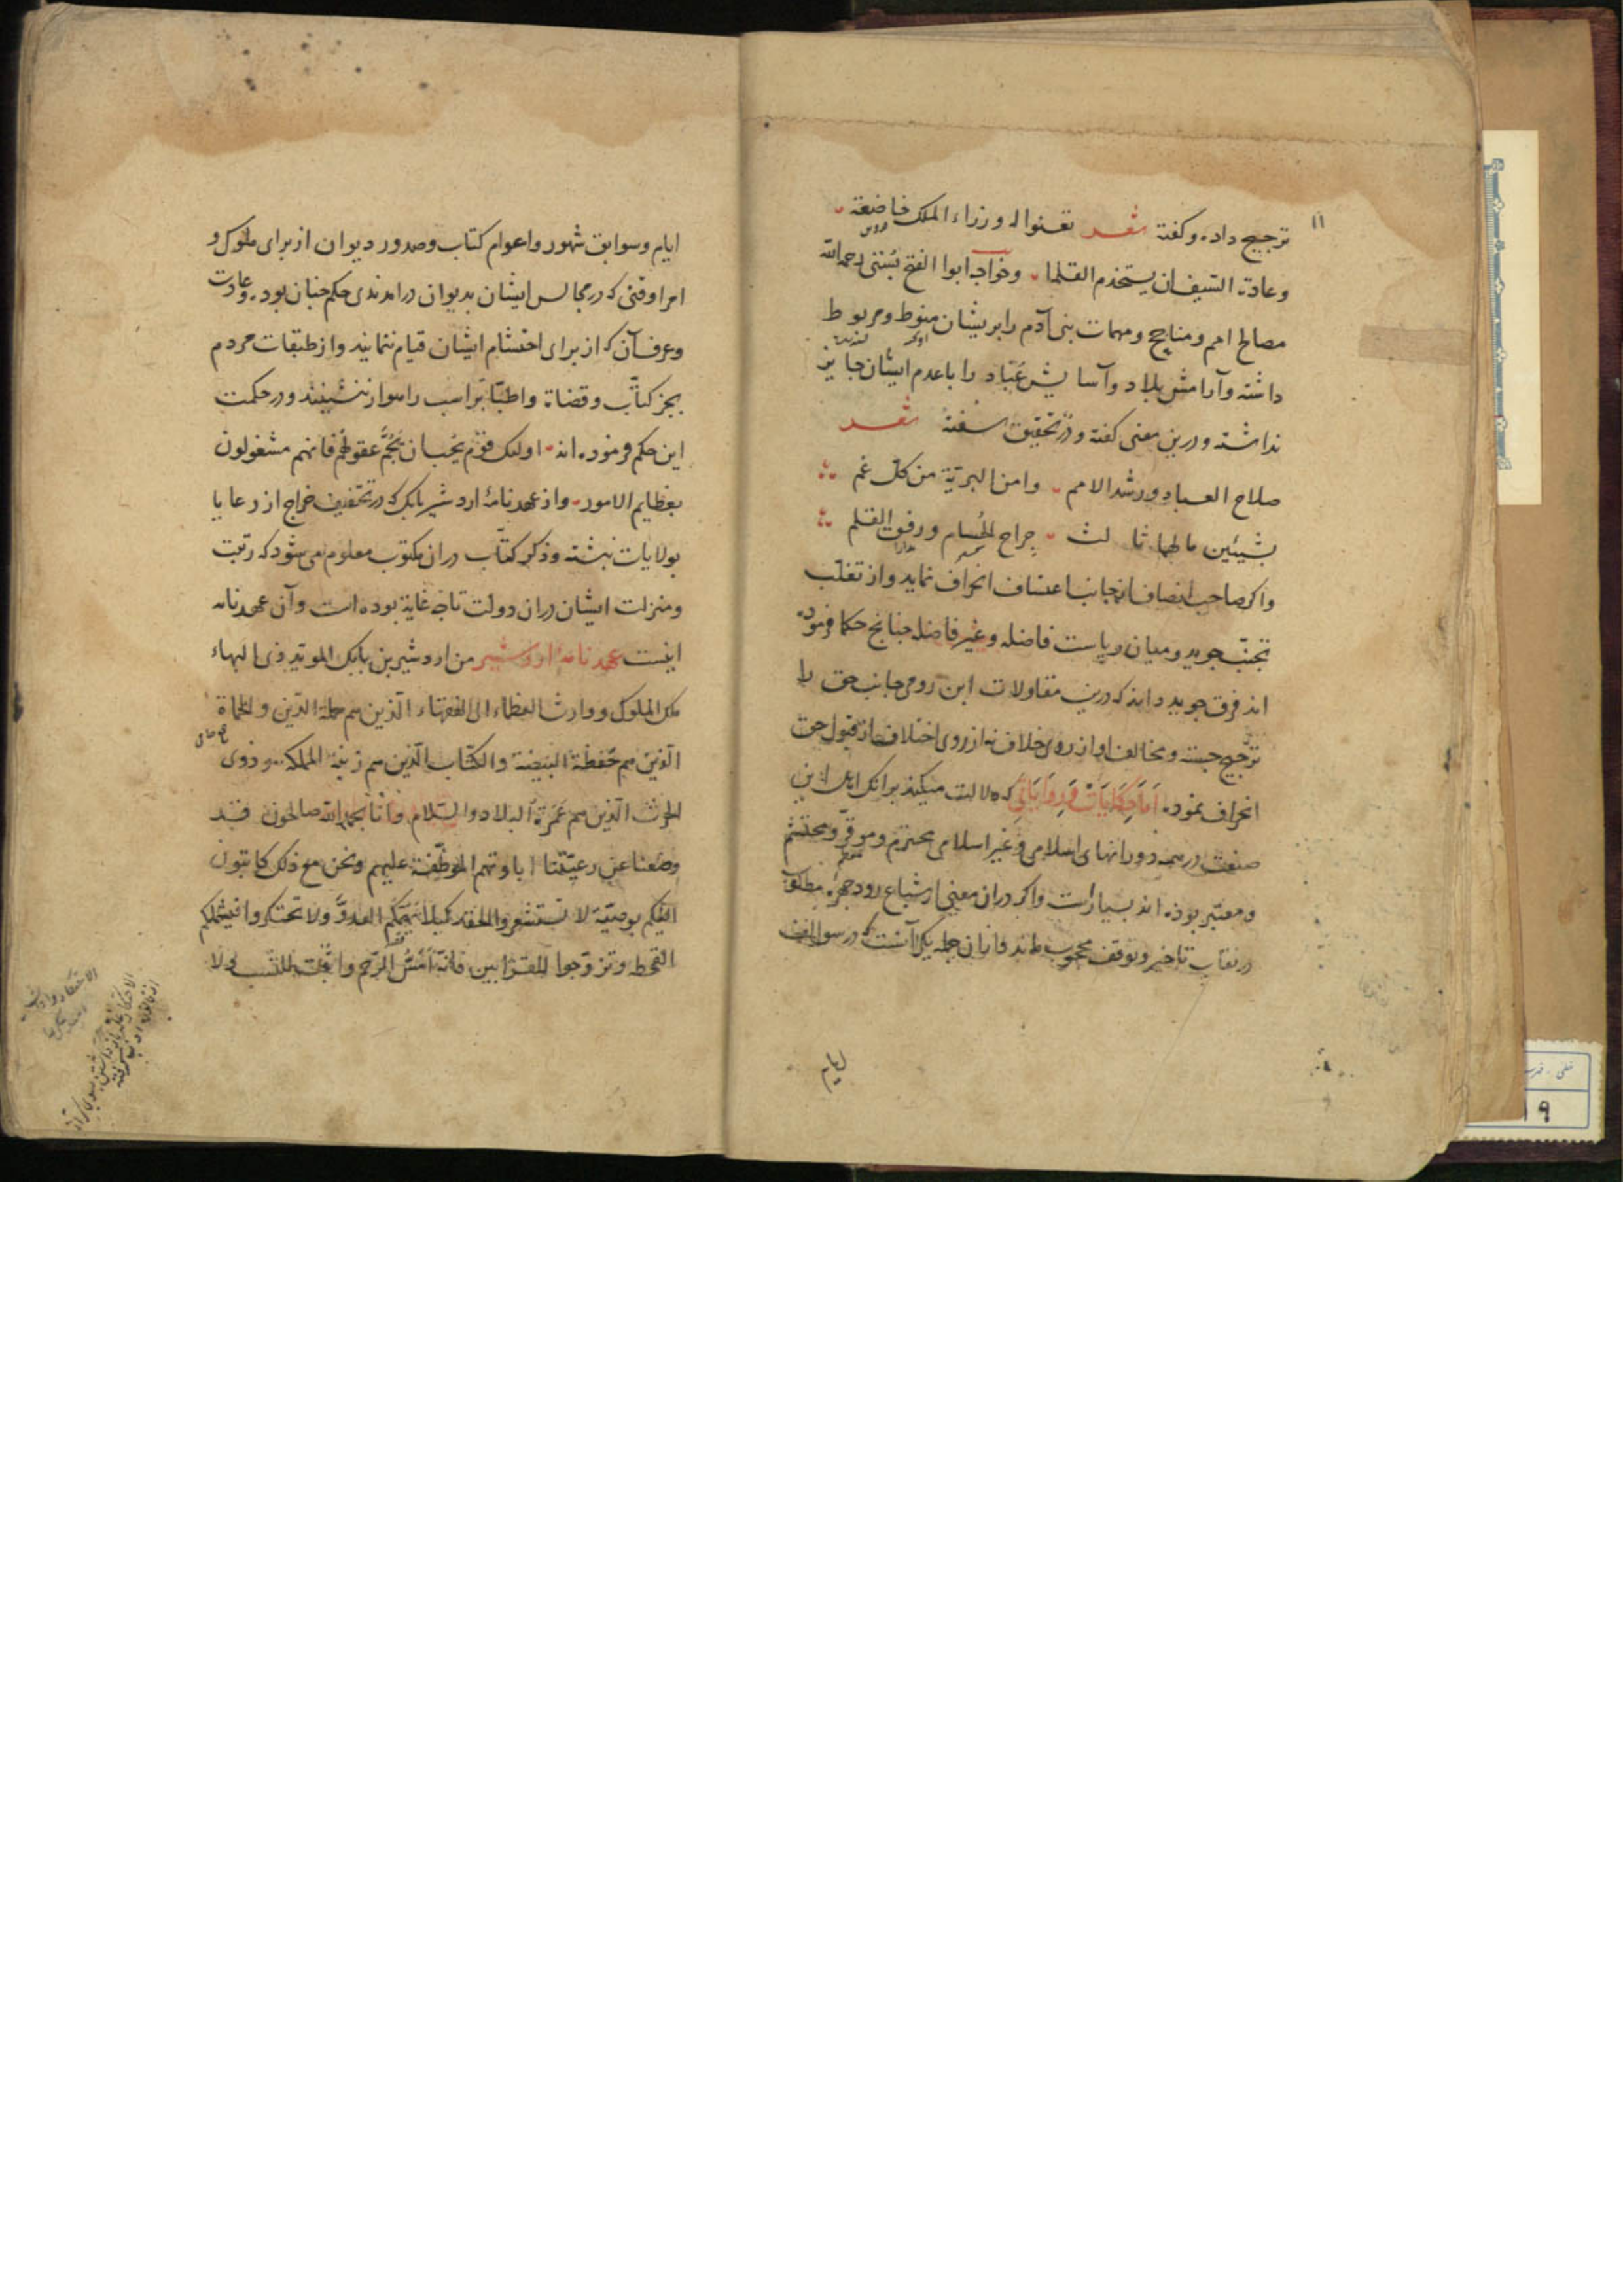 ۱۱
ترجیح داده و گفته شعر تعنوا له وزراء الملک خاضعة
وعادة السیف ان یستخدم القلما وخواجه ابوا الفتح بستی رحمه الله
مصالح امم و مناجح و مهمات بنی آدم را بریشان منوط و مربوط
داشته و آرامش بلاد و آسایش عباد را با عدم ایشان جایز
نداشته و درین معنی گفته و در تحقیق سفته شعر
صلاح العباد ورشد الامم وامن البریة من کل غم
بشیئین مالهما ثالث جراح الحسام ورفق القلم
واکر صاحب انصاف از جانب اعتساف انحراف نماید و از تغلب
تجنب جوید و میان ریاست فاضله و غیر فاضله جنانج حکما فرموده
اند فرق جوید داند که درین مقاولات ابن رومی جانب حق را
ترجیح جسته و مخالف او از روی خلاف نه از روی اختلاف از قبول حق
انحراف نموده اما حکایات و روایاتی که دلالت میکند برانک اهل این
صنعت در همه دورانهای اسلامی و غیر اسلامی محترم و موقر و محتشم
و معتبر بوذه اند بسیارست واکر دران معنی اشباع رود جهره مطلوب
در نقاب تاخیر و توقف محجوب ماند فاما از ان جمله یکی آنست که در سوالف
ایام
ایام و سوابق شهور و اعوام کتاب و صدور دیوان از برای ملوک و
امرا وقتی که در مجالس ایشان بدیوان درامدندی حکم جنان بود و عادت
و عرف آن که از برای احتشام ایشان قیام ننمایند و از طبقات مردم
بجز کتاب و قضاة و اطبا براسب راهوار ننشینند و در حکمت
این حکم فرموده اند اولئک قوم یحبان تجم عقولهم فانهم مشغولون
بعظایم الامور و از عهدنامۀ اردشیر بابک که در تخفیف خراج از رعایا
بولایات نبشته و ذکر کتاب دران مکتوب معلوم می شود که رتبت
و منزلت ایشان دران دولت تا جه غایة بوده است و آن عهدنامه
اینست عهدنامۀ اردشیر من اردشیر بن بابک الموید ذی البهاء
ملک الملوک ووارث العظماء الی الفقهاء الذین هم حملة الدین والحماة
الذین هم حفظة البیضة والکتاب الذین هم زینة المملکه وذوی
الحرث الذین هم عمرة البلاد والسلام فانا بحمد الله صالحون قد
وضعنا عن رعیتنا اباوتهم الموظفة علیهم ونحن مع ذلک کاتبون
الیکم بوصیة لا تستشعروا الحقد کیلا یدهمکم العدو ولا تحتکروا فیشملکم
القحط وتزوجوا للقرابین فانه امس للرحم واثبت للنسب ولا